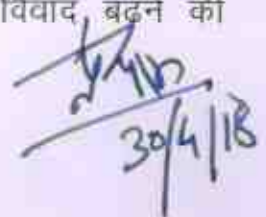 विवाद बढ़ने की
30/4/18